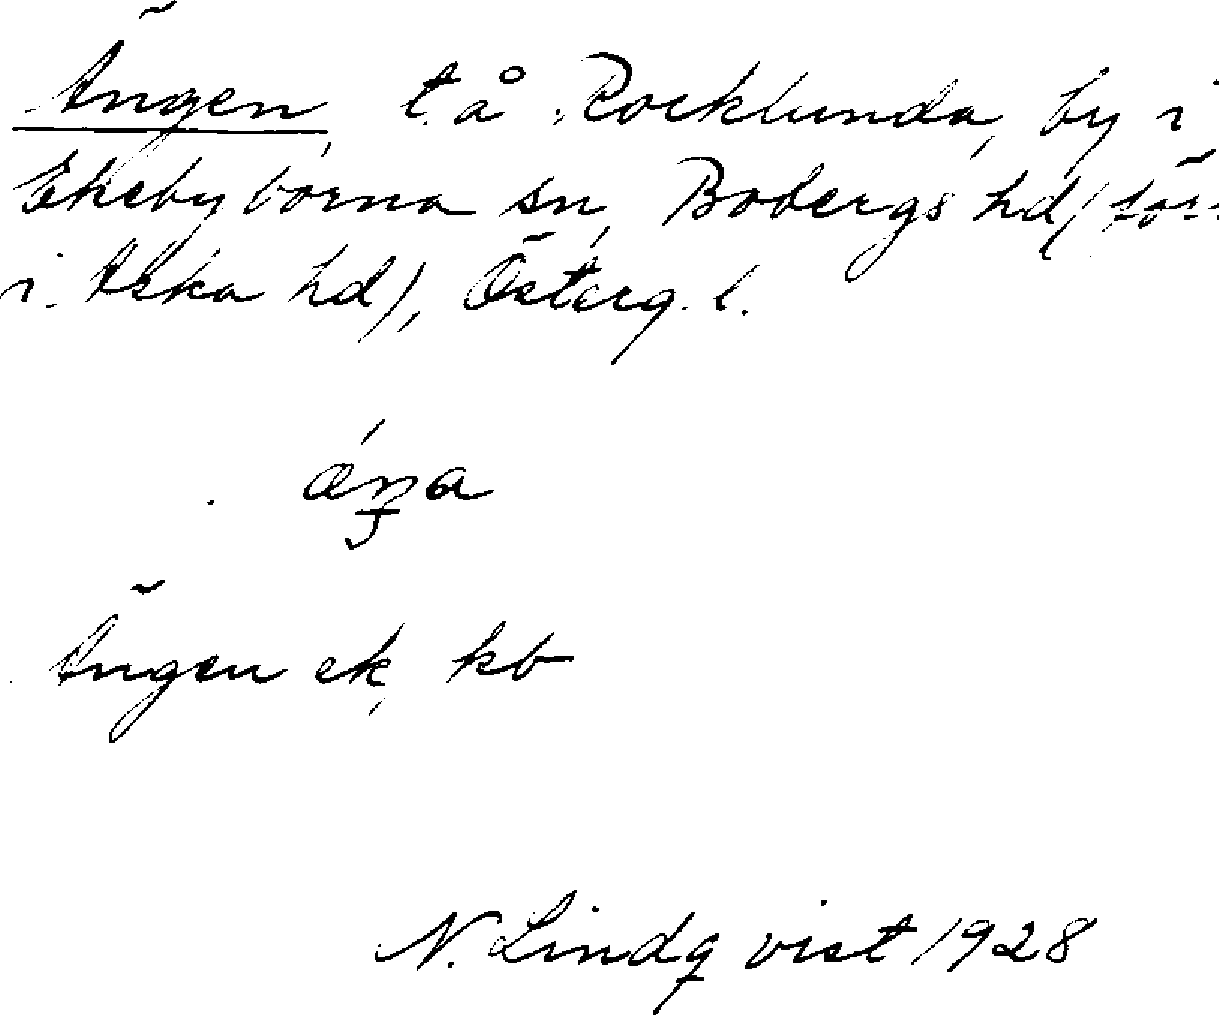 Ängen, t. å Rocklunda, by i
Ekebyborna sn, Bobergs hd (förr
i Aska hd), Österg. l.
ǽŋa
Ängen ek, kb
N. Lindqvist 1928